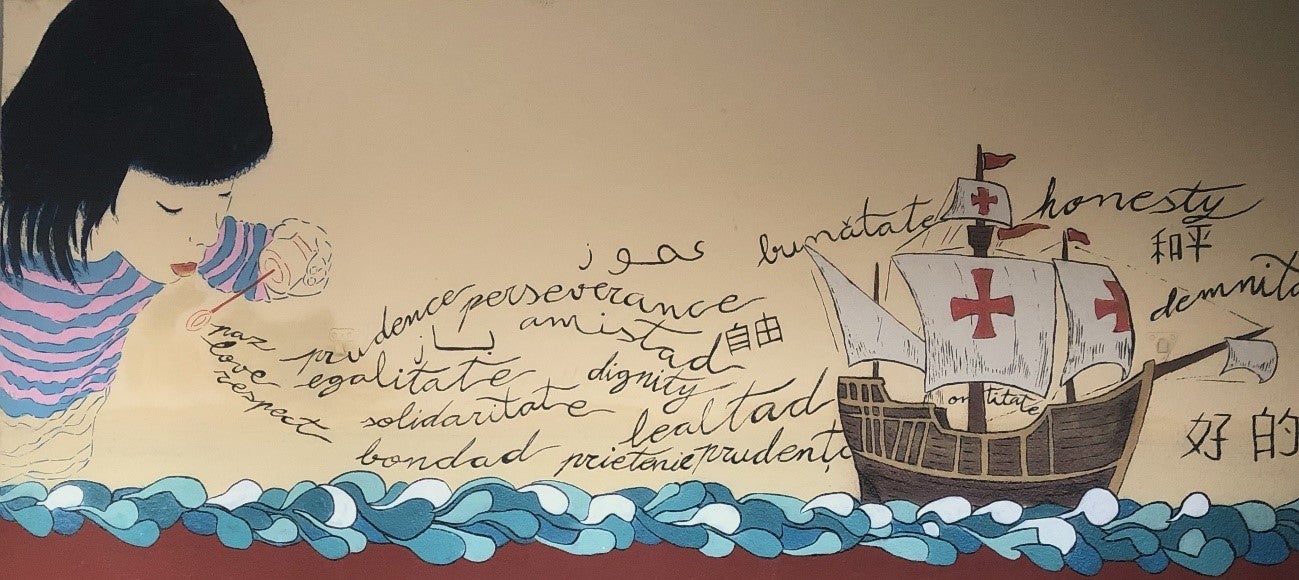 bunătate
honesty
和平
demnita
prudence
perseverance
amistad
自由
paz
love
respect
egalitate
dignity
solidaritate
lealtad
on titate
bondad
prietenie
prudenț
好的